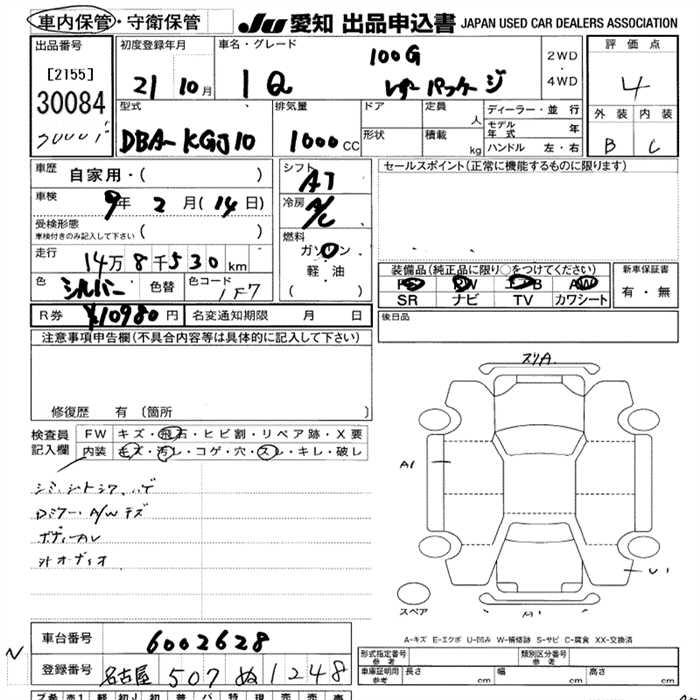 車内保管・守衛保管
JU 愛知 出品申込書 JAPAN USED CAR DEALERS ASSOCIATION
出品番号
[2155]
30084
初度登録年月
21 10月
車名・グレード
iQ
100G
レザーパッケージ
2WD
・
4WD
評価点
4
外装 内装
B C
型式
DBA-KGJ10
排気量
1000 CC
ドア
形状
定員 人
積載 kg
ディーラー・並行
モデル年式 年
ハンドル 左・右
車歴
自家用・( )
車検
9年 2月(14日)
受検形態
車検付きのみ記入して下さい ( )
走行
14万8千530km
色
シルバー
色替
色コード
1F7
シフト
AT
冷房
A/C
燃料
ガソリン
軽・油
( )
セールスポイント(正常に機能するものに限ります)
装備品(純正品に限り○をつけてください)
PS PW エアB AW
SR ナビ TV カワシート
新車保証書
有・無
R券 ¥10980円 名変通知期限 月 日
後日品
注意事項申告欄(不具合内容等は具体的に記入して下さい)
修復歴 有 〔箇所 〕
検査員
記入欄
FW キズ・飛石・ヒビ割・リペア跡・X要
内装 キズ・汚レ・コゲ・穴・スレ・キレ・破レ
シミ、シートシワ、ハゲ
Dミラー・A/Wキズ
ボディーカレ
社外オーディオ
スリA
A1
スペア
A-キズ E-エクボ U-凹み W-補修跡 S-サビ C-腐食 XX-交換済
車台番号
6002628
登録番号
名古屋 507 ぬ 1248
形式指定番号
参考
類別区分番号
参考
車庫証明用
参考
長さ cm 幅 cm 高さ cm